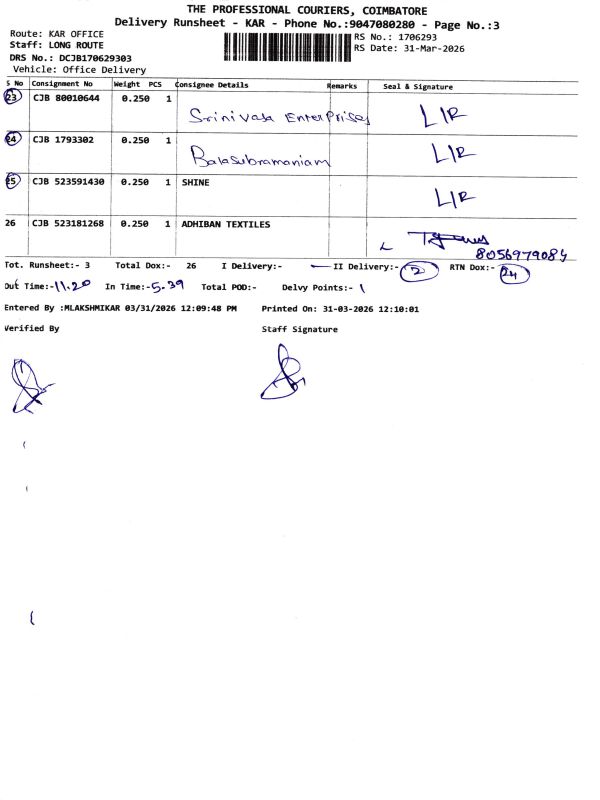 THE PROFESSIONAL COURIERS, COIMBATORE
Delivery Runsheet - KAR - Phone No.:9047080280 - Page No.:3
Route: KAR OFFICE
RS No.: 1706293
Staff: LONG ROUTE
RS Date: 31-Mar-2026
DRS No.: DCJB170629303
Vehicle: Office Delivery
S No Consignment No Weight PCS Consignee Details Remarks Seal & Signature
23 CJB 80010644 0.250 1 Srinivasa Enterprises L/R
24 CJB 1793302 0.250 1 Balasubramaniam L/R
25 CJB 523591430 0.250 1 SHINE L/R
26 CJB 523181268 0.250 1 ADHIBAN TEXTILES
8056979084
Tot. Runsheet:- 3 Total Dox:- 26 I Delivery:- — II Delivery:- 2 RTN Dox:- 24
Out Time:- 11.20 In Time:- 5.39 Total POD:- Delvy Points:- 1
Entered By :MLAKSHMIKAR 03/31/2026 12:09:48 PM Printed On: 31-03-2026 12:10:01
Verified By Staff Signature